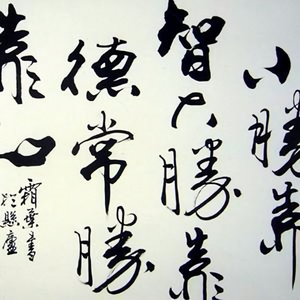 小勝靠
智大勝靠
德常勝
靠心
霜葉書
於廬